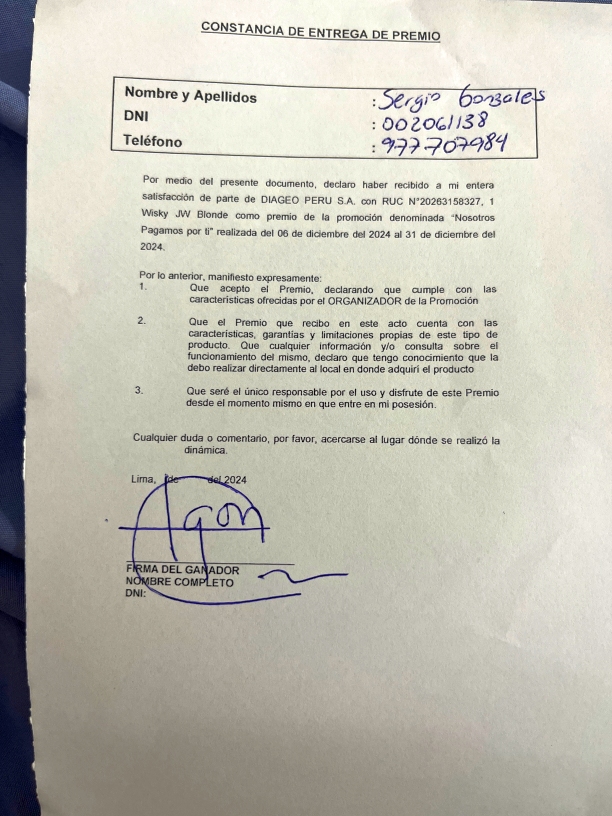 CONSTANCIA DE ENTREGA DE PREMIO
Nombre y Apellidos : Sergio Gonzales
DNI : 002061138
Teléfono : 977707984
Por medio del presente documento, declaro haber recibido a mi entera
satisfacción de parte de DIAGEO PERU S.A. con RUC N°20263158327, 1
Wisky JW Blonde como premio de la promoción denominada “Nosotros
Pagamos por ti” realizada del 06 de diciembre del 2024 al 31 de diciembre del
2024.
Por lo anterior, manifiesto expresamente:
1. Que acepto el Premio, declarando que cumple con las
características ofrecidas por el ORGANIZADOR de la Promoción
2. Que el Premio que recibo en este acto cuenta con las
características, garantías y limitaciones propias de este tipo de
producto. Que cualquier información y/o consulta sobre el
funcionamiento del mismo, declaro que tengo conocimiento que la
debo realizar directamente al local en donde adquirí el producto
3. Que seré el único responsable por el uso y disfrute de este Premio
desde el momento mismo en que entre en mi posesión.
Cualquier duda o comentario, por favor, acercarse al lugar dónde se realizó la
dinámica.
Lima, de del 2024
FIRMA DEL GANADOR
NOMBRE COMPLETO
DNI: